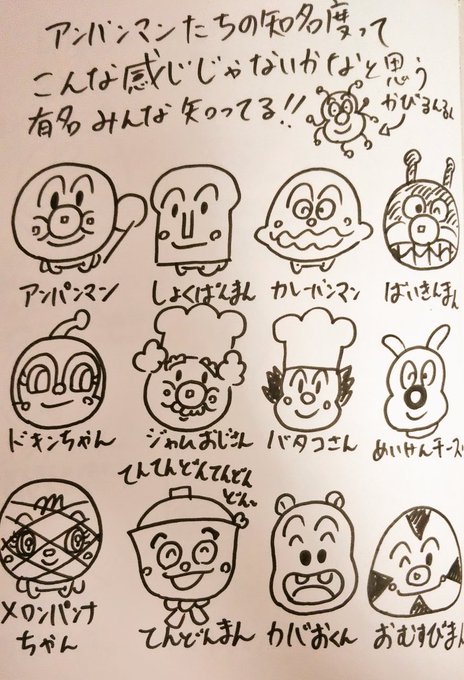 アンパンマンたちの知名度って
こんな感じじゃないかなと思う
有名みんな知ってる!!
かびるんるん
アンパンマン しょくぱんまん カレーパンマン ばいきんまん
ドキンちゃん ジャムおじさん バタコさん めいけんチーズ
てんてんどんてんどん
どん〜
メロンパンナ
ちゃん
てんどんまん カバおくん おむすびまん